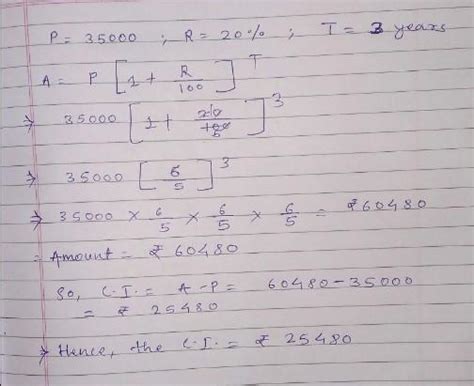 P = 35000 ; R = 20% ; T = 3 years
A = P [1 + R/100]^T
⇒ 35000 [1 + 20/100 5]^3
⇒ 35000 [6/5]^3
⇒ 35000 × 6/5 × 6/5 × 6/5 = ₹60480
= Amount = ₹ 60480
So, C.I. = A - P = 60480 - 35000
= ₹ 25480
⇒ Hence, the C.I. = ₹ 25480